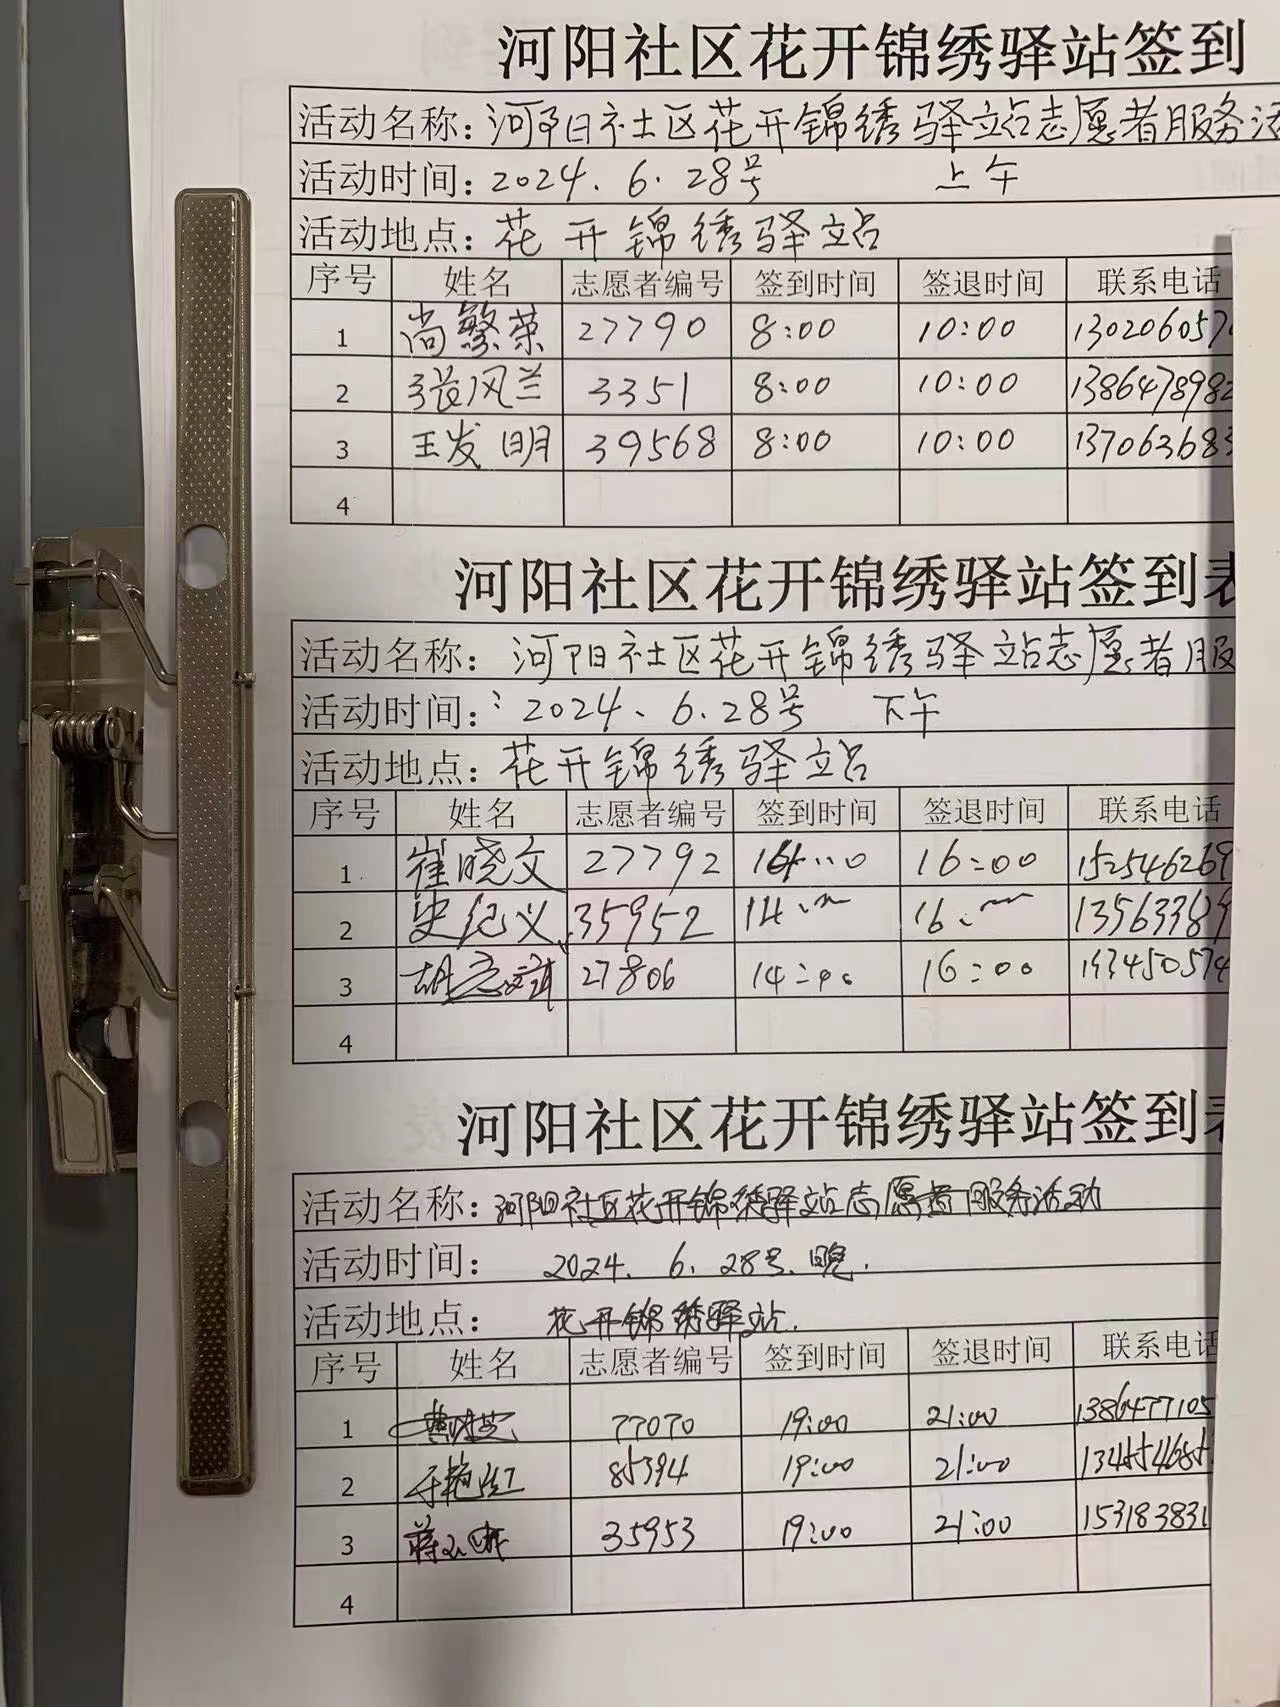 河阳社区花开锦绣驿站签到
活动名称：河阳社区花开锦绣驿站志愿者服务活
活动时间：2024.6.28号 上午
活动地点：花开锦绣驿站
序号 姓名 志愿者编号 签到时间 签退时间 联系电话
1 尚繁荣 27790 8:00 10:00 130206057
2 张风兰 3351 8:00 10:00 138647898
3 王发明 39568 8:00 10:00 137063683
4
河阳社区花开锦绣驿站签到表
活动名称：河阳社区花开锦绣驿站志愿者服
活动时间：2024.6.28号 下午
活动地点：花开锦绣驿站
序号 姓名 志愿者编号 签到时间 签退时间 联系电话
1 崔晓文 27792 16:00 152546269
2 史纪义 35952 14: 16: 13563389
3 27806 14:00 16:00 450574
4
河阳社区花开锦绣驿站签到表
活动名称：河阳社区花开锦绣驿站志愿者服务活动
活动时间：2024.6.28号.晚.
活动地点：花开锦绣驿站.
序号 姓名 志愿者编号 签到时间 签退时间 联系电话
1 77070 19:00 21:00 1386477105
2 于艳红 85394 19:00 21:00 134554685
3 35953 19:00 21:00 153183831
4